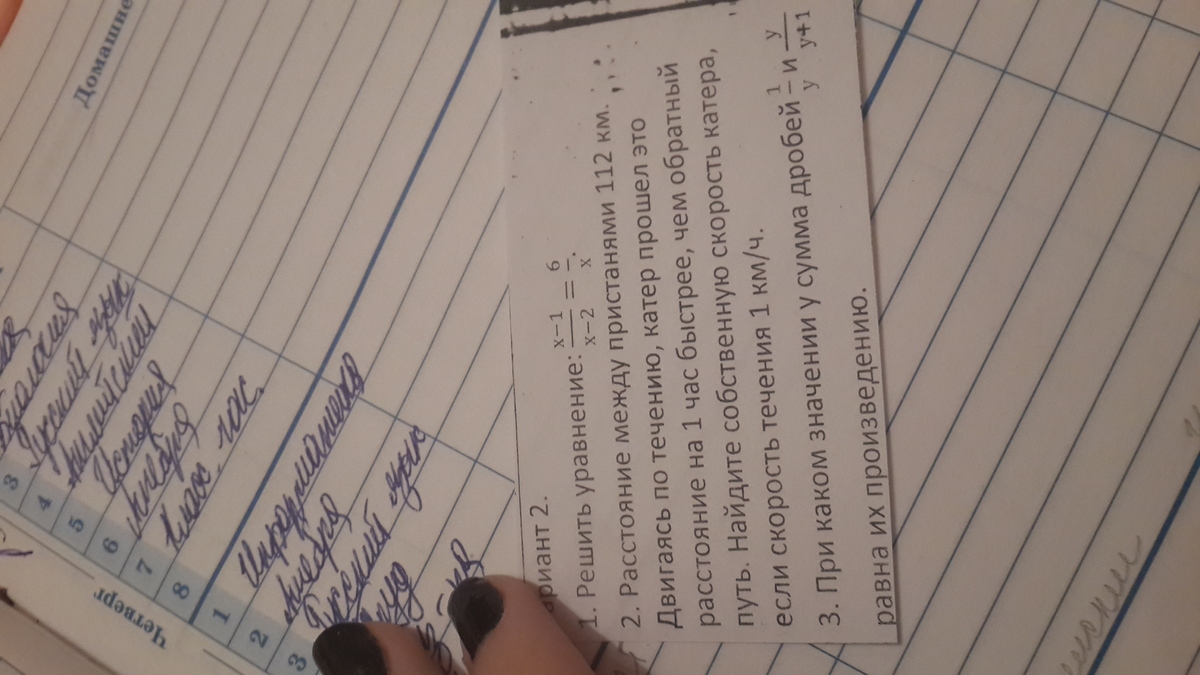 Домашне
3
4
5
6
7
8
Биология
Русский язык
Английский
История
Алгебра
Класс. час.
Четверг
1
2
3
Информатика
Алгебра
Русский язык
ариант 2.
1. Решить уравнение: x−1/x−2 = 6/x.
2. Расстояние между пристанями 112 км.
Двигаясь по течению, катер прошел это
расстояние на 1 час быстрее, чем обратный
путь. Найдите собственную скорость катера,
если скорость течения 1 км/ч.
3. При каком значении y сумма дробей 1/y и y/y+1
равна их произведению.